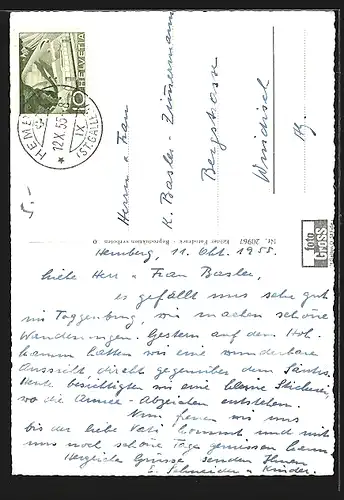 HELVETIA
10
HEMBERG
12.X.55-8
IX
(ST. GALLEN)
Herrn u Frau
K. Basler-Zimmermann
Bergstrasse
Windisch
Ag.
5.-
foto
GROSS
Nr. 20967 Keiner Fotodruck - Reproduktion verboten
Hemberg, 11. Okt. 1955.
Liebe Herr u Frau Basler,
es gefällt uns sehr gut
im Toggenburg, wir machen schöne
Wanderungen. Gestern auf dem Hoh
kamm hatten wir eine wunderbare
Aussicht direkt gegenüber dem Säntis.
Heute besichtigten wir eine kleine Stickerei,
wo die Armee-Abzeichen entstehen.
Nun freuen wir uns
bis der liebe Vati kommt und mit
uns noch schöne Tage geniessen kann.
Herzliche Grüsse senden Ihnen
E. Schneider u Kinder.